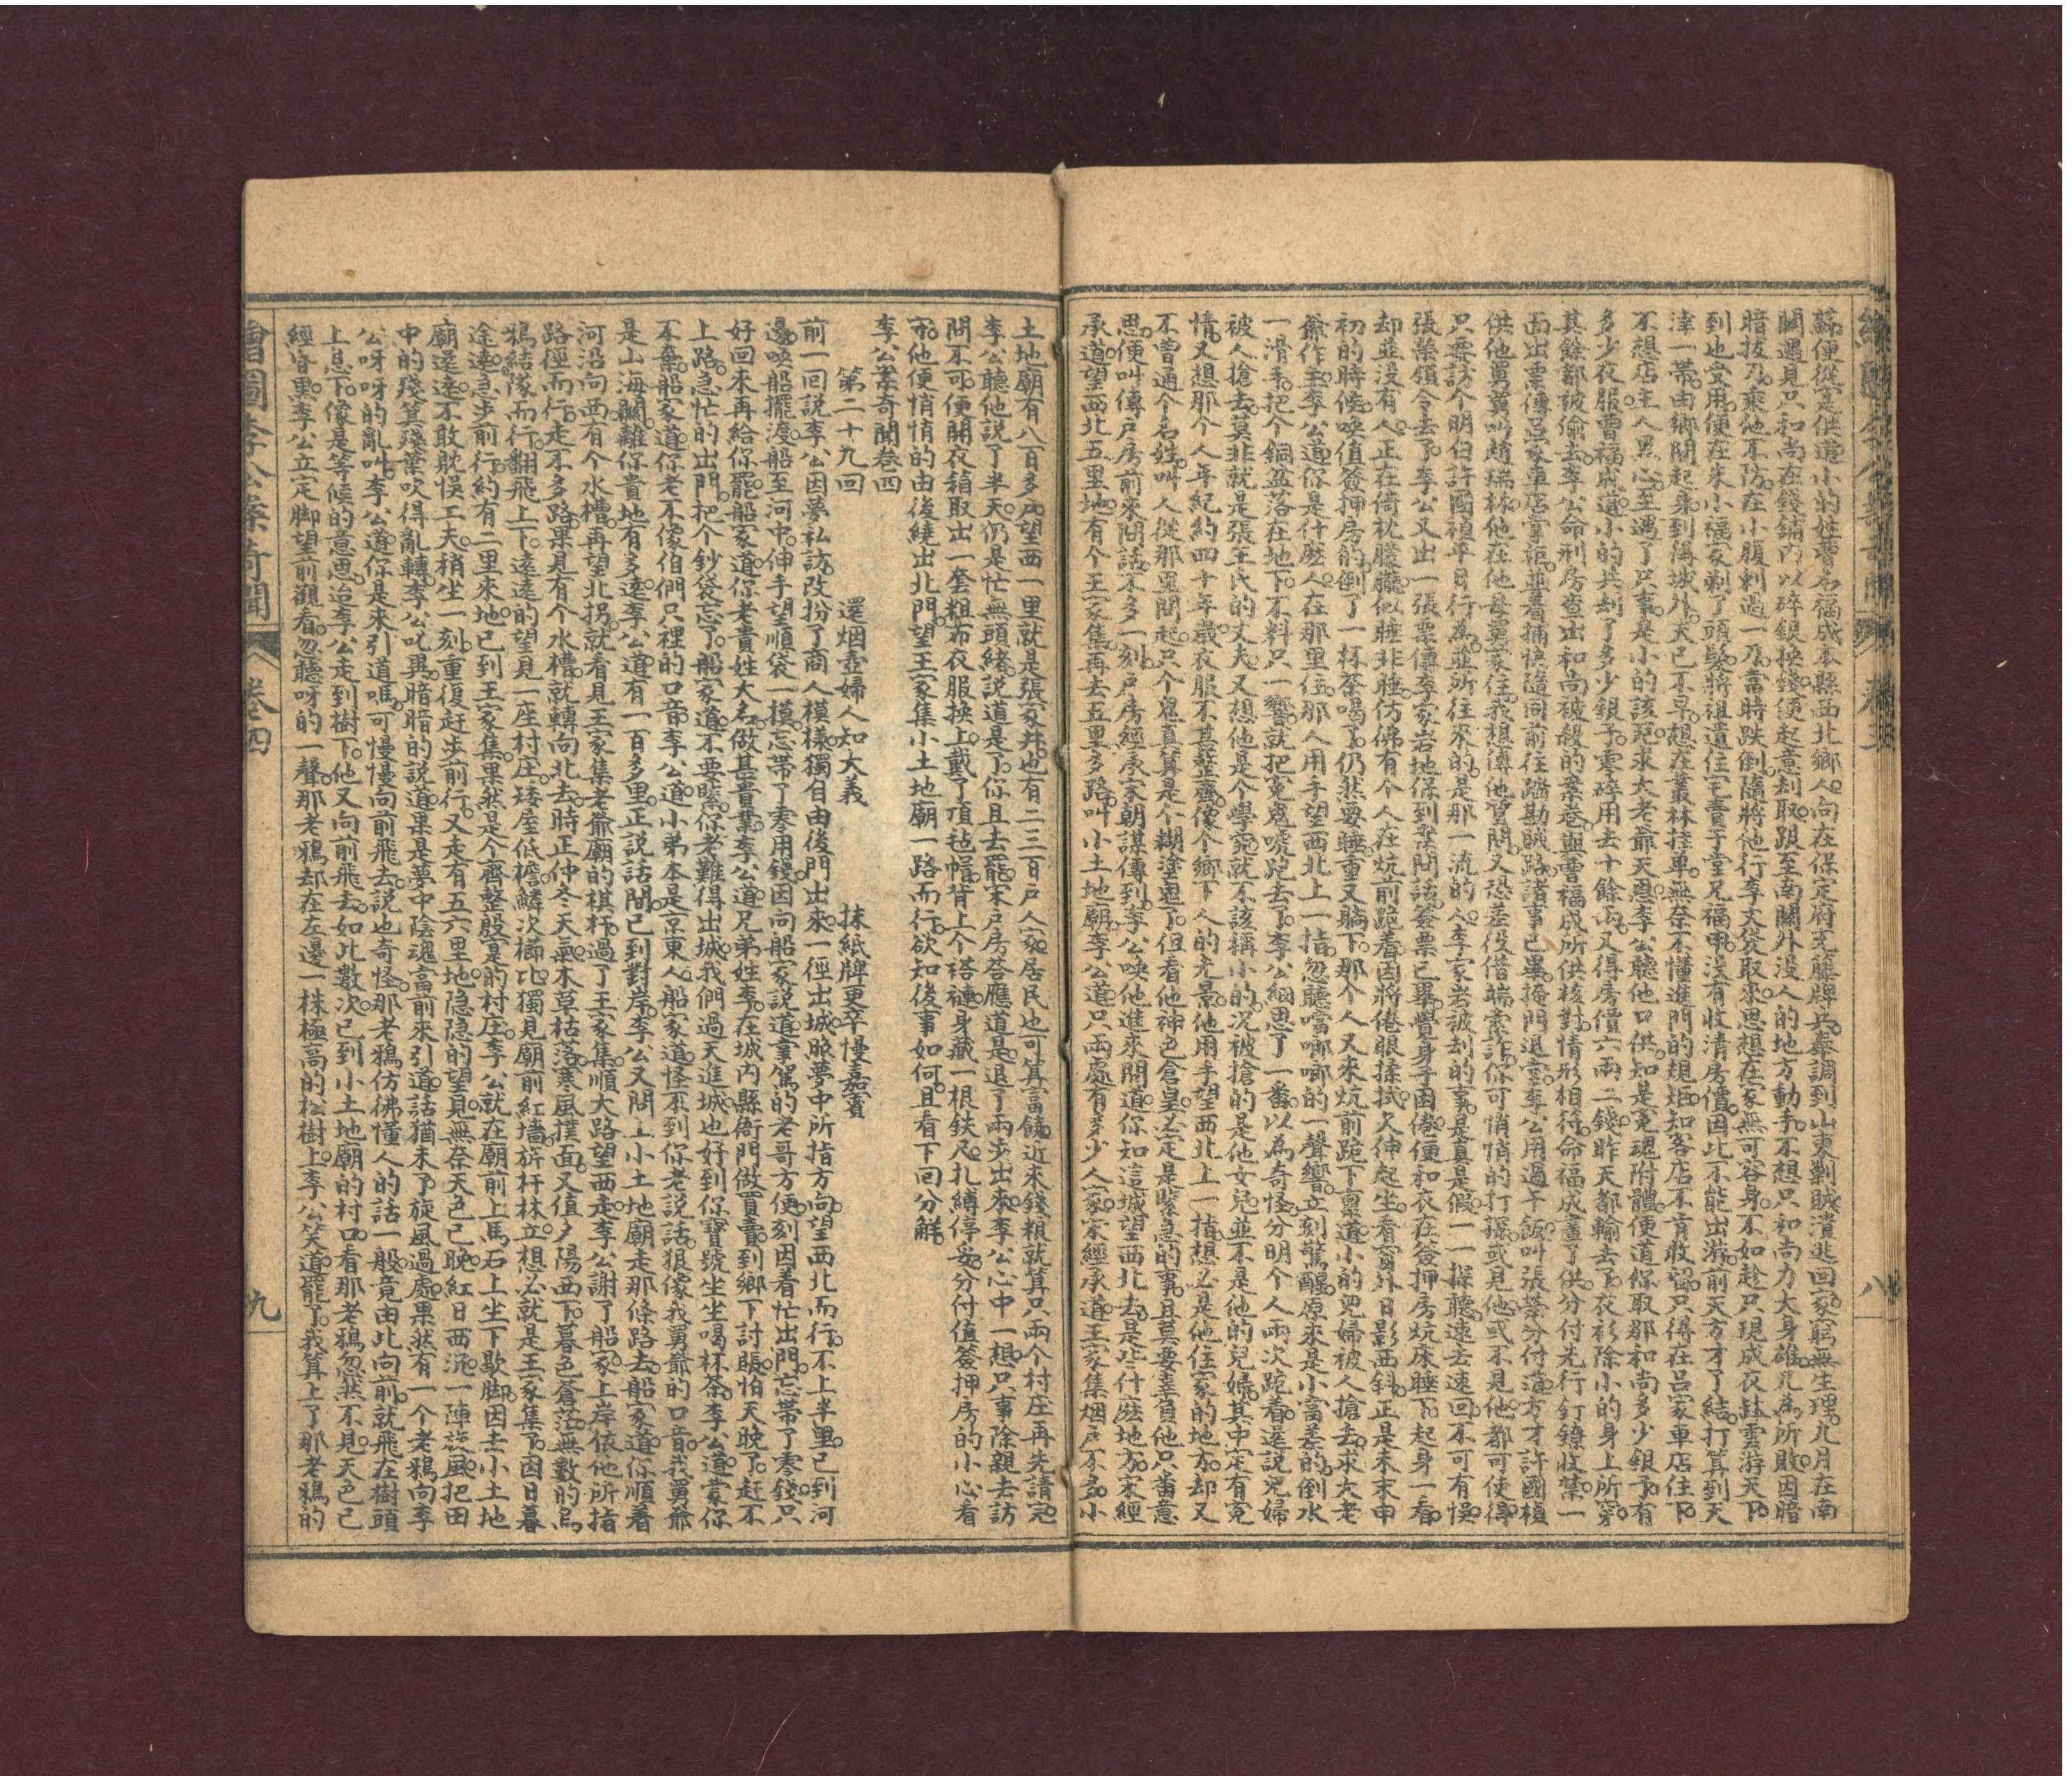 蒜便從寔供道小的姓曹名福成本縣西北鄉人向在保定府充籐牌兵奉調到山東剿賊潰逃回家窮無生理九月在南
關遇見只和尚在錢舖内以碎銀換錢便起意刦取跟至南關外没人的地方動手不想只和尚力大身雄兄為所敗因暗
暗拔刀乘他不防在小腹刺過一刀當時跌倒隨將他行李丈袋取來思想在家無可容身不如趁只現成衣缽雲游天下
到也受用便在朱小福家剃了頭髮將祖遺住宅賣于堂兄福申没有收清房價因此不能出游前天方才了結打算到天
津一帶由鄉間起身到偁城外天已不早想在叢林挂單無奈不懂進門的規矩知客店不肯收留只得在吕家車店住下
不想店主人黑心至遇了只事是小的該死求大老爺天恩李公聽他口供知是冤魂附體便道你取那和尚多少銀子有
多少衣服曹福成道小的共刦了多少銀子零碎用去十餘兩又得房價六兩二錢昨天都輸去了衣衫除小的身上所穿
其餘都被偷去李公命刑房查出和尚被殺的案卷與曹福成所供核對情形相符命福成畫了供分付先行釘鐐收禁一
面出票傳呂家車店掌櫃並着捕快隨同前往踏勘賊路諸事已畢掩門退堂李公用過午飯叫張榮分付道方才許國楨
供他舅舅叫趙瑞林他在他母舅家住我想傳他質問又恐差役借端索詐你可悄悄的打聽或見他或不見他都可使得
只要訪个明白許國禎平日行為並所往來的是那一流的人李家岩被刦的事是真是假一一探聽速去速回不可有悞
張榮領令去了李公又出一張票傳李家岩地保到案問話簽票已畢覺身子困倦便和衣在簽押房炕床睡下起身一看
却並没有人正在倚枕朦朧似睡非睡仿佛有个人在炕前跪着因將倦眼揉拭欠伸起坐看窗外日影西斜正是未末申
初的時候喚值簽押房的倒了一杯茶喝了仍然要睡重又躺下那个人又來炕前跪下禀道小的兒婦被人搶去求大老
爺作主李公道你是什麽人在那里住那人用手望西北上一指忽聽噹啷啷的一聲響立刻驚醒原來是小富差的倒水
一滑手把个銅盆落在地下不料只一響就把冤鬼唬跑去了李公細思了一番以為奇怪分明个人兩次跪着還說兒婦
被人搶去莫非就是張王氏的丈夫又想他是个學究就不該稱小的况被搶的是他女兒並不是他的兒婦其中定有冤
情又想那个人年紀約四十年歲衣服不甚整齊像个鄉下人的光景他用手望西北上一指想必是他住家的地方却又
不曾通个名姓叫人從那里問起只个鬼真算是个糊塗鬼了但看他神色倉皇必定是緊急的事且莫要辜負他只番意
思便叫傳戸房前來問話不多一刻戸房經承家朝謀傳到李公喚他進來問道你知這城望西北去是些什麽地方宋經
承道望西北五里地有个王家集再去五里多路叫小土地廟李公道只兩處有多少人家宋經承道王家集烟戶不多小
土地廟有八百多戸望西一里就是張家井也有二三百戸人家居民也可算富饒近來錢粮就算只兩个村庄再先請完
李公聽他說了半天仍是忙無頭緒說道是了你且去罷宋戸房答應道是退了兩步出來李公心中一想只事除親去訪
問不可便開衣箱取出一套粗布衣服換上戴了頂毡帽背上个褡褳身藏一根鉄尺扎縛停妥分付值簽押房的小心看
守他便悄悄的由後繞出北門望王家集小土地廟一路而行欲知後事如何且看下回分解
李公案奇聞卷四
第二十九回 還烟壺婦人知大義 抹紙牌更卒慢嘉賓
前一回説李公因夢私訪改扮了商人模樣獨自由後門出來一徑出城照夢中所指方向望西北而行不上半里已到河
邊喚船擺渡船至河中伸手望順袋一摸忘帶了零用錢因向船家説道掌駕的老哥方便刻因着忙出門忘帶了零錢只
好回來再給你罷船家道你老貴姓大名做甚貴業李公道兄弟姓李在城内縣衙門做買賣到鄉下討賬怕天晚了赶不
上路急忙的出門把个鈔袋忘了船家道不要緊你老難得出城我們過天進城也好到你寶號坐坐喝杯茶李公道蒙你
不棄船家道你老不像伯們只裡的口音李公道小弟本是京東人船家道怪不到你老説話狠像我舅爺的口音我舅爺
是山海關離你貴地有多遠李公道有一百多里正説話間已到對岸李公又問上小土地廟走那條路去船家道你順着
河沿向西有个水槽再望北拐就看見王家集老爺廟的棋杆過了王家集順大路望西走李公謝了船家上岸依他所指
路徑而行走不多路果見有个水槽就轉向北去時正仲冬天氣木草枯落寒風撲面又值夕陽西下暮色蒼茫無數的烏
鴉結隊而行翻飛上下遠遠的望見一座村庄矮屋低檐鱗次櫛比獨見廟前紅墻旂杆林立想必就是王家集了因日暮
途遠急步前行約有二里來地已到王家集果然是个齊整殷富的村庄李公就在廟前上馬石上坐下歇脚因去小土地
廟還遠不敢躭悞工夫稍坐一刻重復赶步前行又走有五六里地隐隐的望見無奈天色已晚紅日西流一陣旋風把田
中的殘箕殘葉吹得亂轉李公叱異暗暗的説道果是夢中陰魂富前來引道話猶未了旋風過處果然有一个老鴉向李
公呀呀的亂叫李公道你是來引道嗎可慢慢向前飛去説也奇怪那老鴉仿佛懂人的話一般竟由北向前就飛在樹頭
上息下像是等候的意思迨李公走到樹下他又向前飛去如此數次已到小土地廟的村口看那老鴉忽然不見天色已
經昏黑李公立定脚望前觀看忽聽呀的一聲那老鴉却在左邊一株極高的松樹上李公笑道罷了我算上了那老鴉的
繪圖李公案奇聞 卷四 九